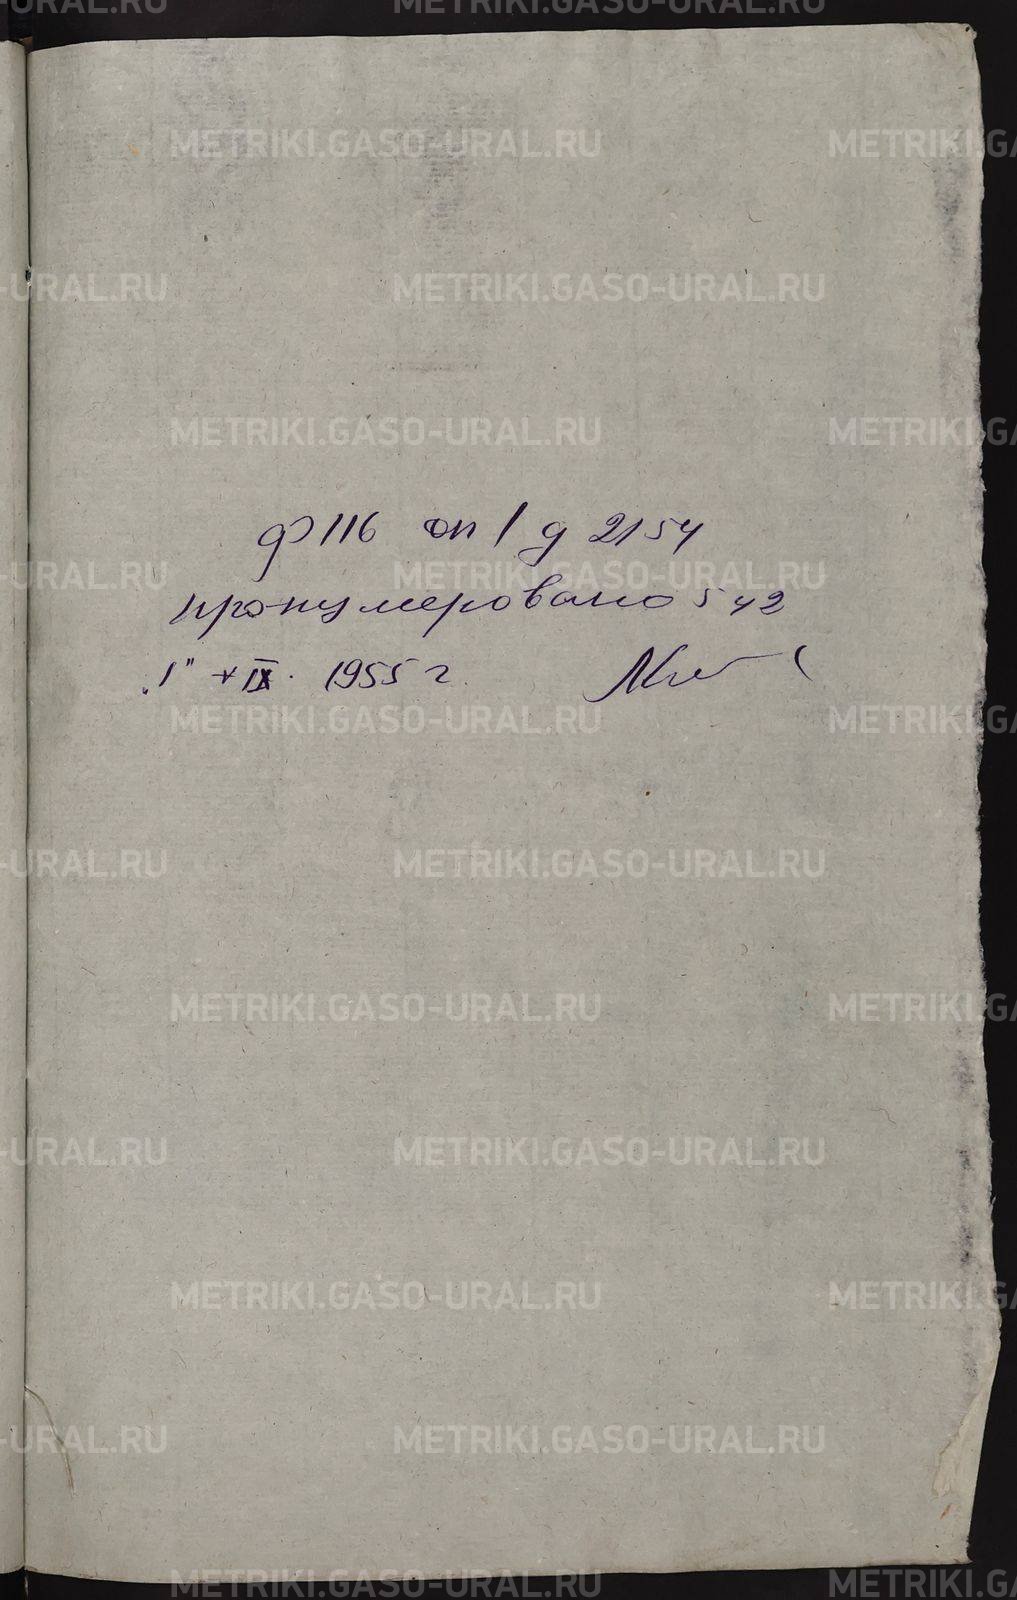 METRIKI.GASO-URAL.RU
ф 116 оп 1 д 2154
пронумеровано 542
„1" IX. 1955 г.